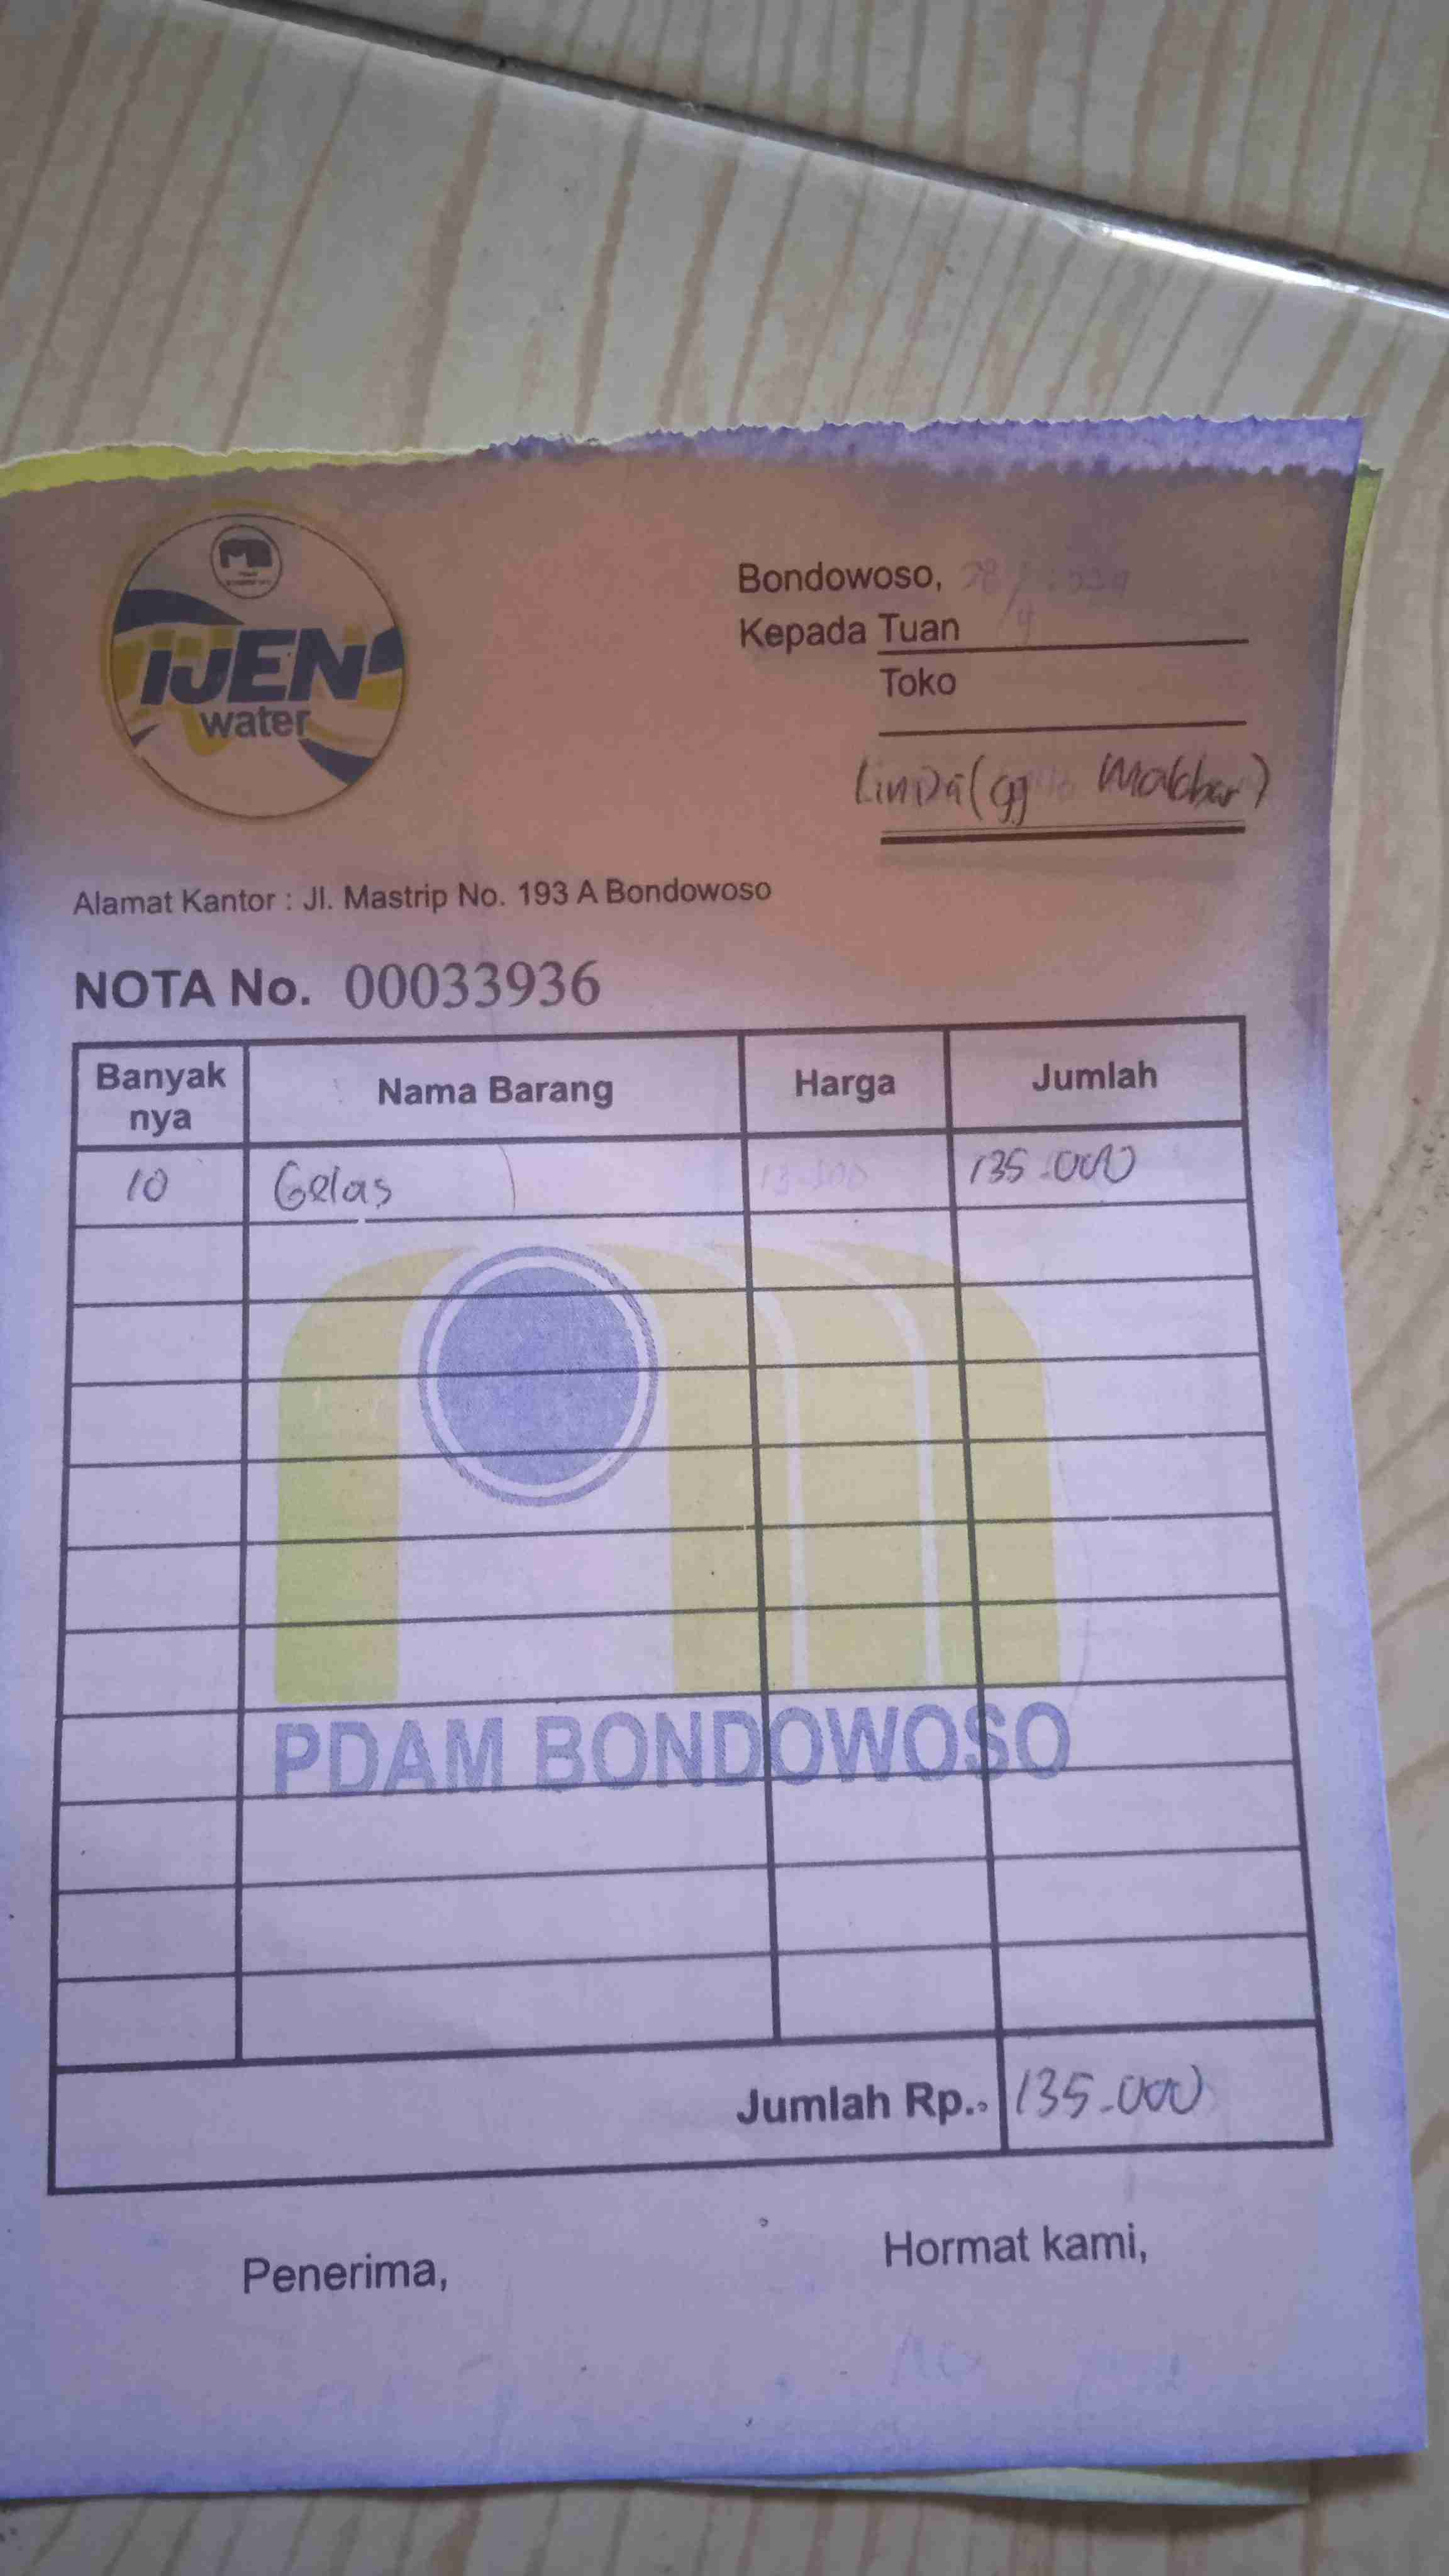 IJEN
water
Bondowoso, 28/4
Kepada Tuan
Toko
Linda (gg Makbar)
Alamat Kantor : Jl. Mastrip No. 193 A Bondowoso
NOTA No. 00033936
Banyak nya Nama Barang Harga Jumlah
10 Gelas 13.500 135.000
PDAM BONDOWOSO
Jumlah Rp. 135.000
Penerima, Hormat kami,